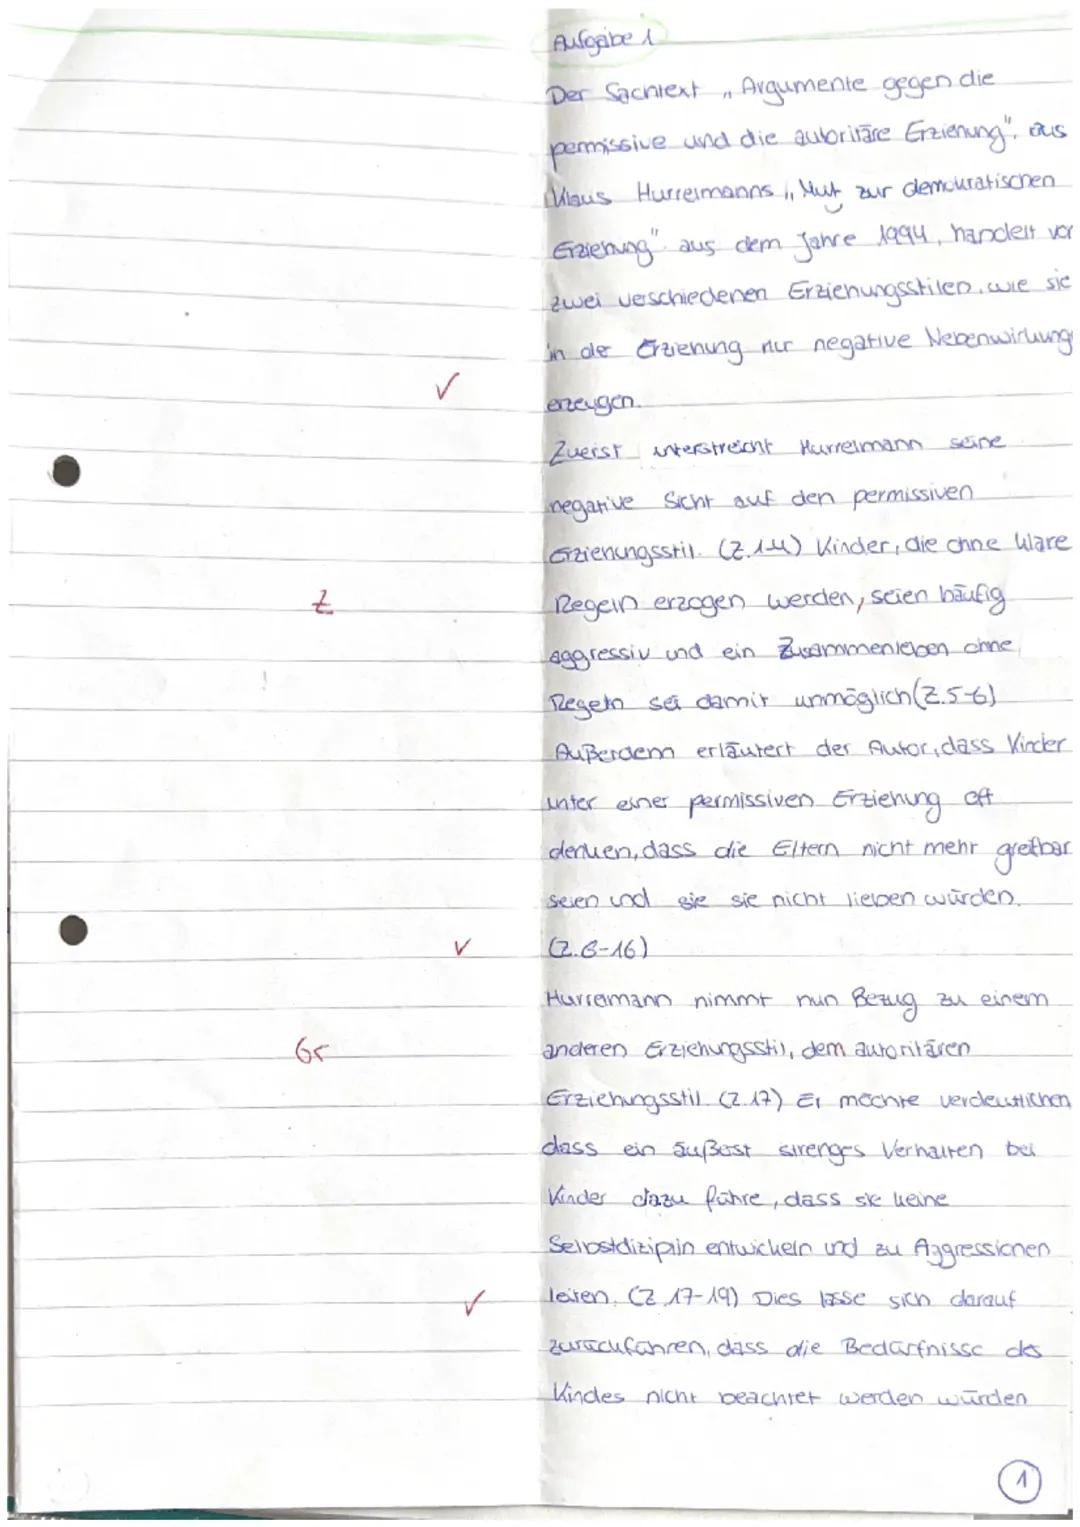 Aufgabe 1
Der Sachtext „Argumente gegen die
permissive und die autoritäre Erziehung", aus
Klaus Hurrelmanns „Mut zur demokratischen
Erziehung" aus dem Jahre 1994, handelt von
zwei verschiedenen Erziehungsstilen, wie sie
in der Erziehung nur negative Nebenwirkung
erzeugen.
Zuerst unterstreicht Hurrelmann seine
negative Sicht auf den permissiven
Erziehungsstil. (Z.1-4) Kinder, die ohne klare
Z Regeln erzogen werden, seien häufig
aggressiv und ein Zusammenleben ohne
Regeln sei damit unmöglich (Z.5-6)
Außerdem erläutert der Autor, dass Kinder
unter einer permissiven Erziehung oft
denken, dass die Eltern nicht mehr greifbar
seien und sie sie nicht lieben würden.
(Z.6-16)
Hurrelmann nimmt nun Bezug zu einem
Gr anderen Erziehungsstil, dem autoritären
Erziehungsstil. (Z.17) Er möchte verdeutlichen,
dass ein äußest strenges Verhalten bei
Kinder dazu führe, dass sie keine
Selbstdiziplin entwickeln und zu Aggressionen
leiten. (Z.17-19) Dies lasse sich darauf
zurückführen, dass die Bedürfnisse des
Kindes nicht beachtet werden würden
1